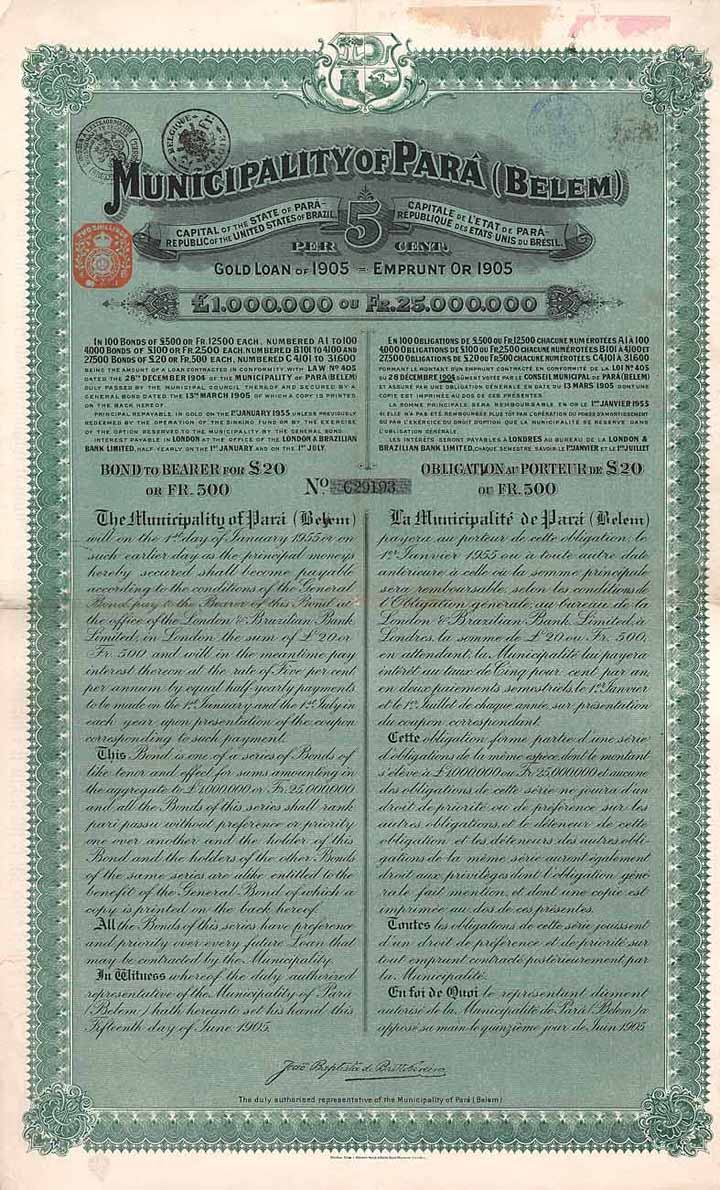 BELGIQUE
MUNICIPALITY OF PARÁ (BELEM)
CAPITAL OF THE STATE OF PARÁ-
REPUBLIC OF THE UNITED STATES OF BRAZIL.
5
CAPITALE DE L'ETAT DE PARÁ-
RÉPUBLIQUE DES ETATS UNIS DU BRÉSIL.
PER CENT.
TWO SHILLINGS
GOLD LOAN OF 1905 = EMPRUNT OR 1905
£1.000.000 OU FR. 25.000.000
IN 100 BONDS OF £500 OR FR. 12500 EACH, NUMBERED A1 TO 100
4000 BONDS OF £100 OR FR. 2500 EACH, NUMBERED B101 TO 4100 AND
27500 BONDS OF £20 OR FR. 500 EACH, NUMBERED C4101 TO 31600
BEING THE AMOUNT OF A LOAN CONTRACTED IN CONFORMITY WITH LAW No 405
DATED THE 28TH DECEMBER 1904 OF THE MUNICIPALITY OF PARÁ (BELEM)
DULY PASSED BY THE MUNICIPAL COUNCIL THEREOF AND SECURED BY A
GENERAL BOND DATED THE 13TH MARCH 1905 OF WHICH A COPY IS PRINTED
ON THE BACK HEREOF.
PRINCIPAL REPAYABLE IN GOLD ON THE 1ST JANUARY 1955 UNLESS PREVIOUSLY
REDEEMED BY THE OPERATION OF THE SINKING FUND OR BY THE EXERCISE
OF THE OPTION RESERVED TO THE MUNICIPALITY BY THE GENERAL BOND.
INTEREST PAYABLE IN LONDON AT THE OFFICE OF THE LONDON & BRAZILIAN
BANK LIMITED, HALF-YEARLY ON THE 1ST JANUARY AND ON THE 1ST JULY.
EN 100 OBLIGATIONS DE £500 OU FR. 12500 CHACUNE NUMÉROTÉES A1 À 100
4000 OBLIGATIONS DE £100 OU FR. 2500 CHACUNE NUMÉROTÉES B101 À 4100 ET
27500 OBLIGATIONS DE £20 OU FR. 500 CHACUNE NUMÉROTÉES C4101 À 31600
FORMANT LE MONTANT D'UN EMPRUNT CONTRACTÉ EN CONFORMITÉ DE LA LOI No 405
DU 28 DÉCEMBRE 1904 DÛMENT VOTÉE PAR LE CONSEIL MUNICIPAL DE PARÁ (BELEM)
ET ASSURÉ PAR UNE OBLIGATION GÉNÉRALE EN DATE DU 13 MARS 1905 DONT UNE
COPIE EST IMPRIMÉE AU DOS DE CES PRÉSENTES.
LA SOMME PRINCIPALE SERA REMBOURSABLE EN OR LE 1ER JANVIER 1955
SI ELLE N'A PAS ÉTÉ REMBOURSÉE PLUS TÔT PAR L'OPÉRATION DU FONDS D'AMORTISSEMENT
OU PAR L'EXERCICE DU DROIT D'OPTION QUE LA MUNICIPALITÉ SE RÉSERVE DANS
L'OBLIGATION GÉNÉRALE.
LES INTÉRÊTS SERONT PAYABLES À LONDRES AU BUREAU DE LA LONDON &
BRAZILIAN BANK LIMITED, CHAQUE SEMESTRE SAVOIR LE 1ER JANVIER ET LE 1ER JUILLET
BOND TO BEARER FOR £20
OR FR. 500
No. C29193
OBLIGATION AU PORTEUR DE £20
OU FR. 500
The Municipality of Pará (Belem)
will on the 1st day of January 1955 or on
such earlier day as the principal moneys
hereby secured shall become payable
according to the conditions of the General
Bond, pay to the Bearer of this Bond at
the office of the London & Brazilian Bank
Limited, in London the sum of £20 or
Fr. 500 and will in the meantime pay
interest thereon at the rate of Five per cent
per annum by equal half-yearly payments
to be made on the 1st January and the 1st July in
each year upon presentation of the coupon
corresponding to such payment.
This Bond is one of a series of Bonds of
like tenor and effect for sums amounting in
the aggregate to £1.000.000 or Fr. 25.000.000
and all the Bonds of this series shall rank
pari passu without preference or priority
one over another and the holder of this
Bond and the holders of the other Bonds
of the same series are alike entitled to the
benefit of the General Bond of which a
copy is printed on the back hereof.
All the Bonds of this series have preference
and priority over every future Loan that
may be contracted by the Municipality.
In Witness whereof the duly authorized
representative of the Municipality of Pará
(Belem) hath hereunto set his hand this
Fifteenth day of June 1905.
La Municipalité de Pará (Belem)
payera au porteur de cette obligation, le
1er Janvier 1955 ou à toute autre date
antérieure à celle où la somme principale
sera remboursable, selon les conditions de
l'Obligation générale, au bureau de la
London & Brazilian Bank Limited, à
Londres, la somme de £20 ou Fr. 500,
en attendant, la Municipalité lui payera
intérêt au taux de Cinq pour cent par an,
en deux paiements semestriels, le 1er Janvier
et le 1er Juillet de chaque année, sur présentation
du coupon correspondant.
Cette obligation forme partie d'une série
d'obligations de la même espèce, dont le montant
s'élève à £1.000.000 ou Fr. 25.000.000 et aucune
des obligations de cette série ne jouira d'un
droit de priorité ou de préférence sur les
autres obligations, et le détenteur de cette
obligation et les détenteurs des autres obli-
gations de la même série auront également
droit aux privilèges dont l'obligation géné-
rale fait mention, et dont une copie est
imprimée au dos de ces présentes.
Toutes les obligations de cette série jouissent
d'un droit de préférence et de priorité sur
tout emprunt contracté postérieurement par
la Municipalité.
En foi de Quoi le représentant dûment
autorisé de la Municipalité de Pará (Belem) a
apposé sa main le quinzième jour de Juin 1905.
The duly authorized representative of the Municipality of Pará (Belem)